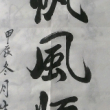 帆風順
甲辰冬月